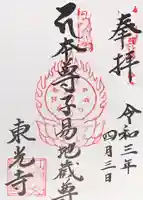 奉拝
令和三年
四月三日
本尊子易地蔵尊
東光寺